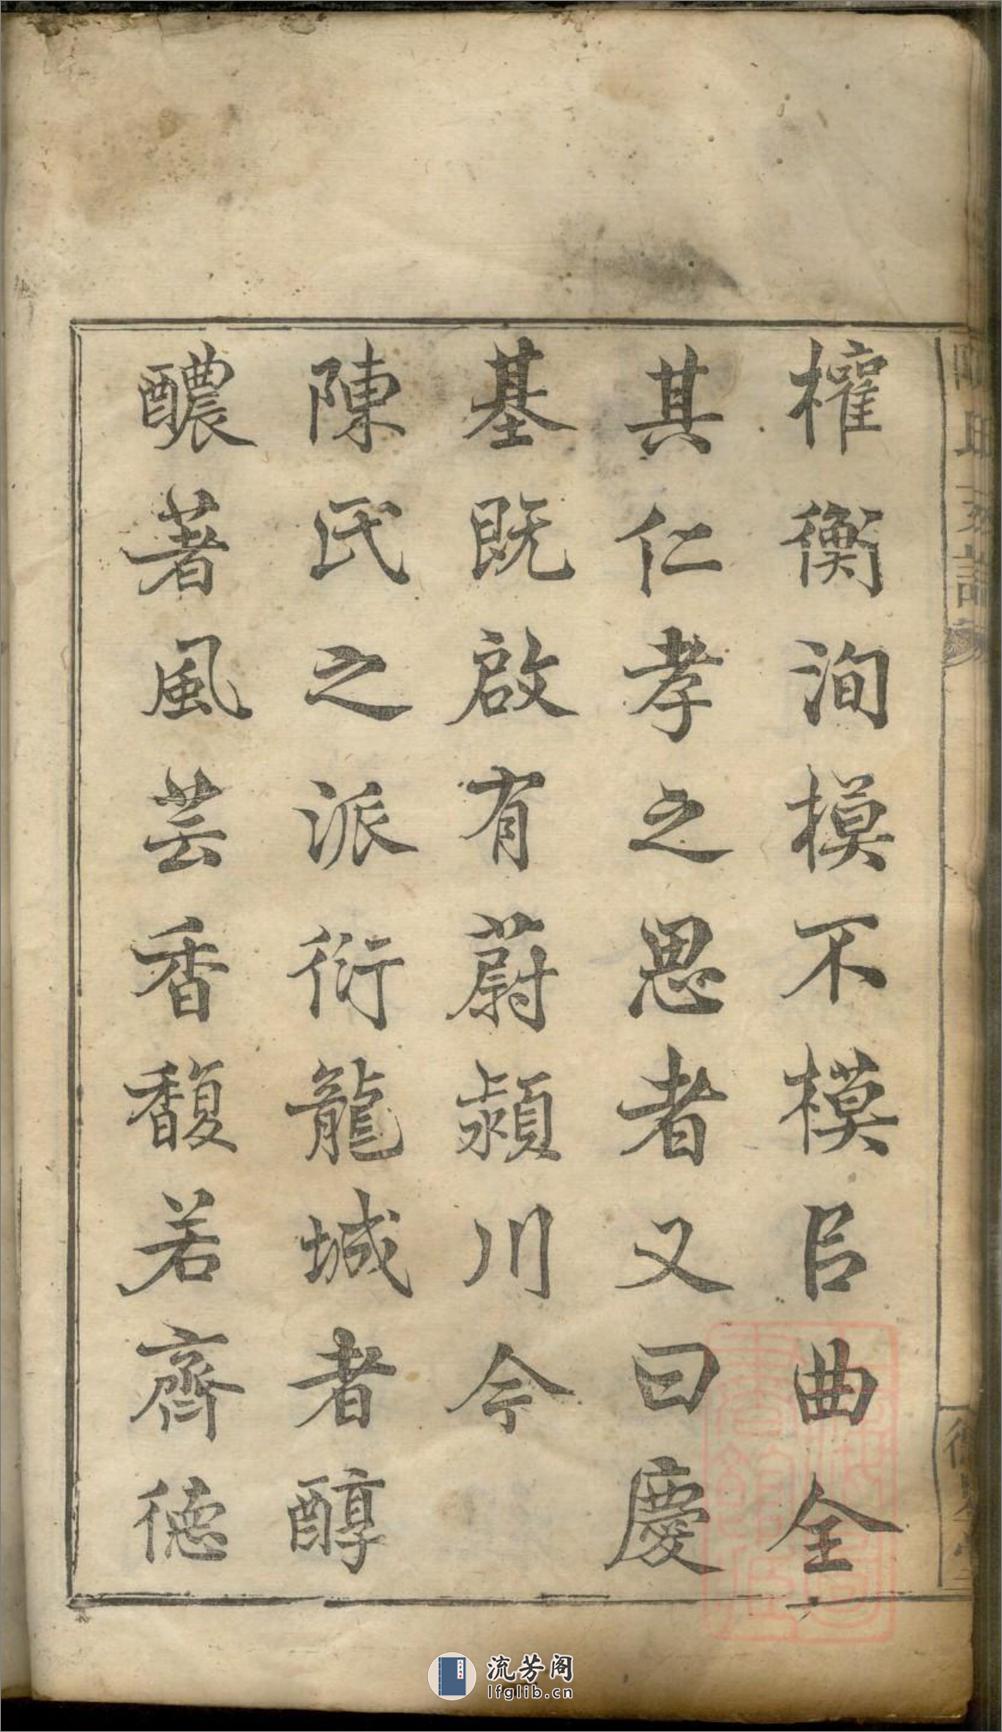 權衡洵模不模㠯曲全
其仁孝之思者又曰慶
基既啟有蔚潁川今
陳氏之派衍龍城者醇
醲著風芸香馥若齊德
流芳阁
lfglib.cn